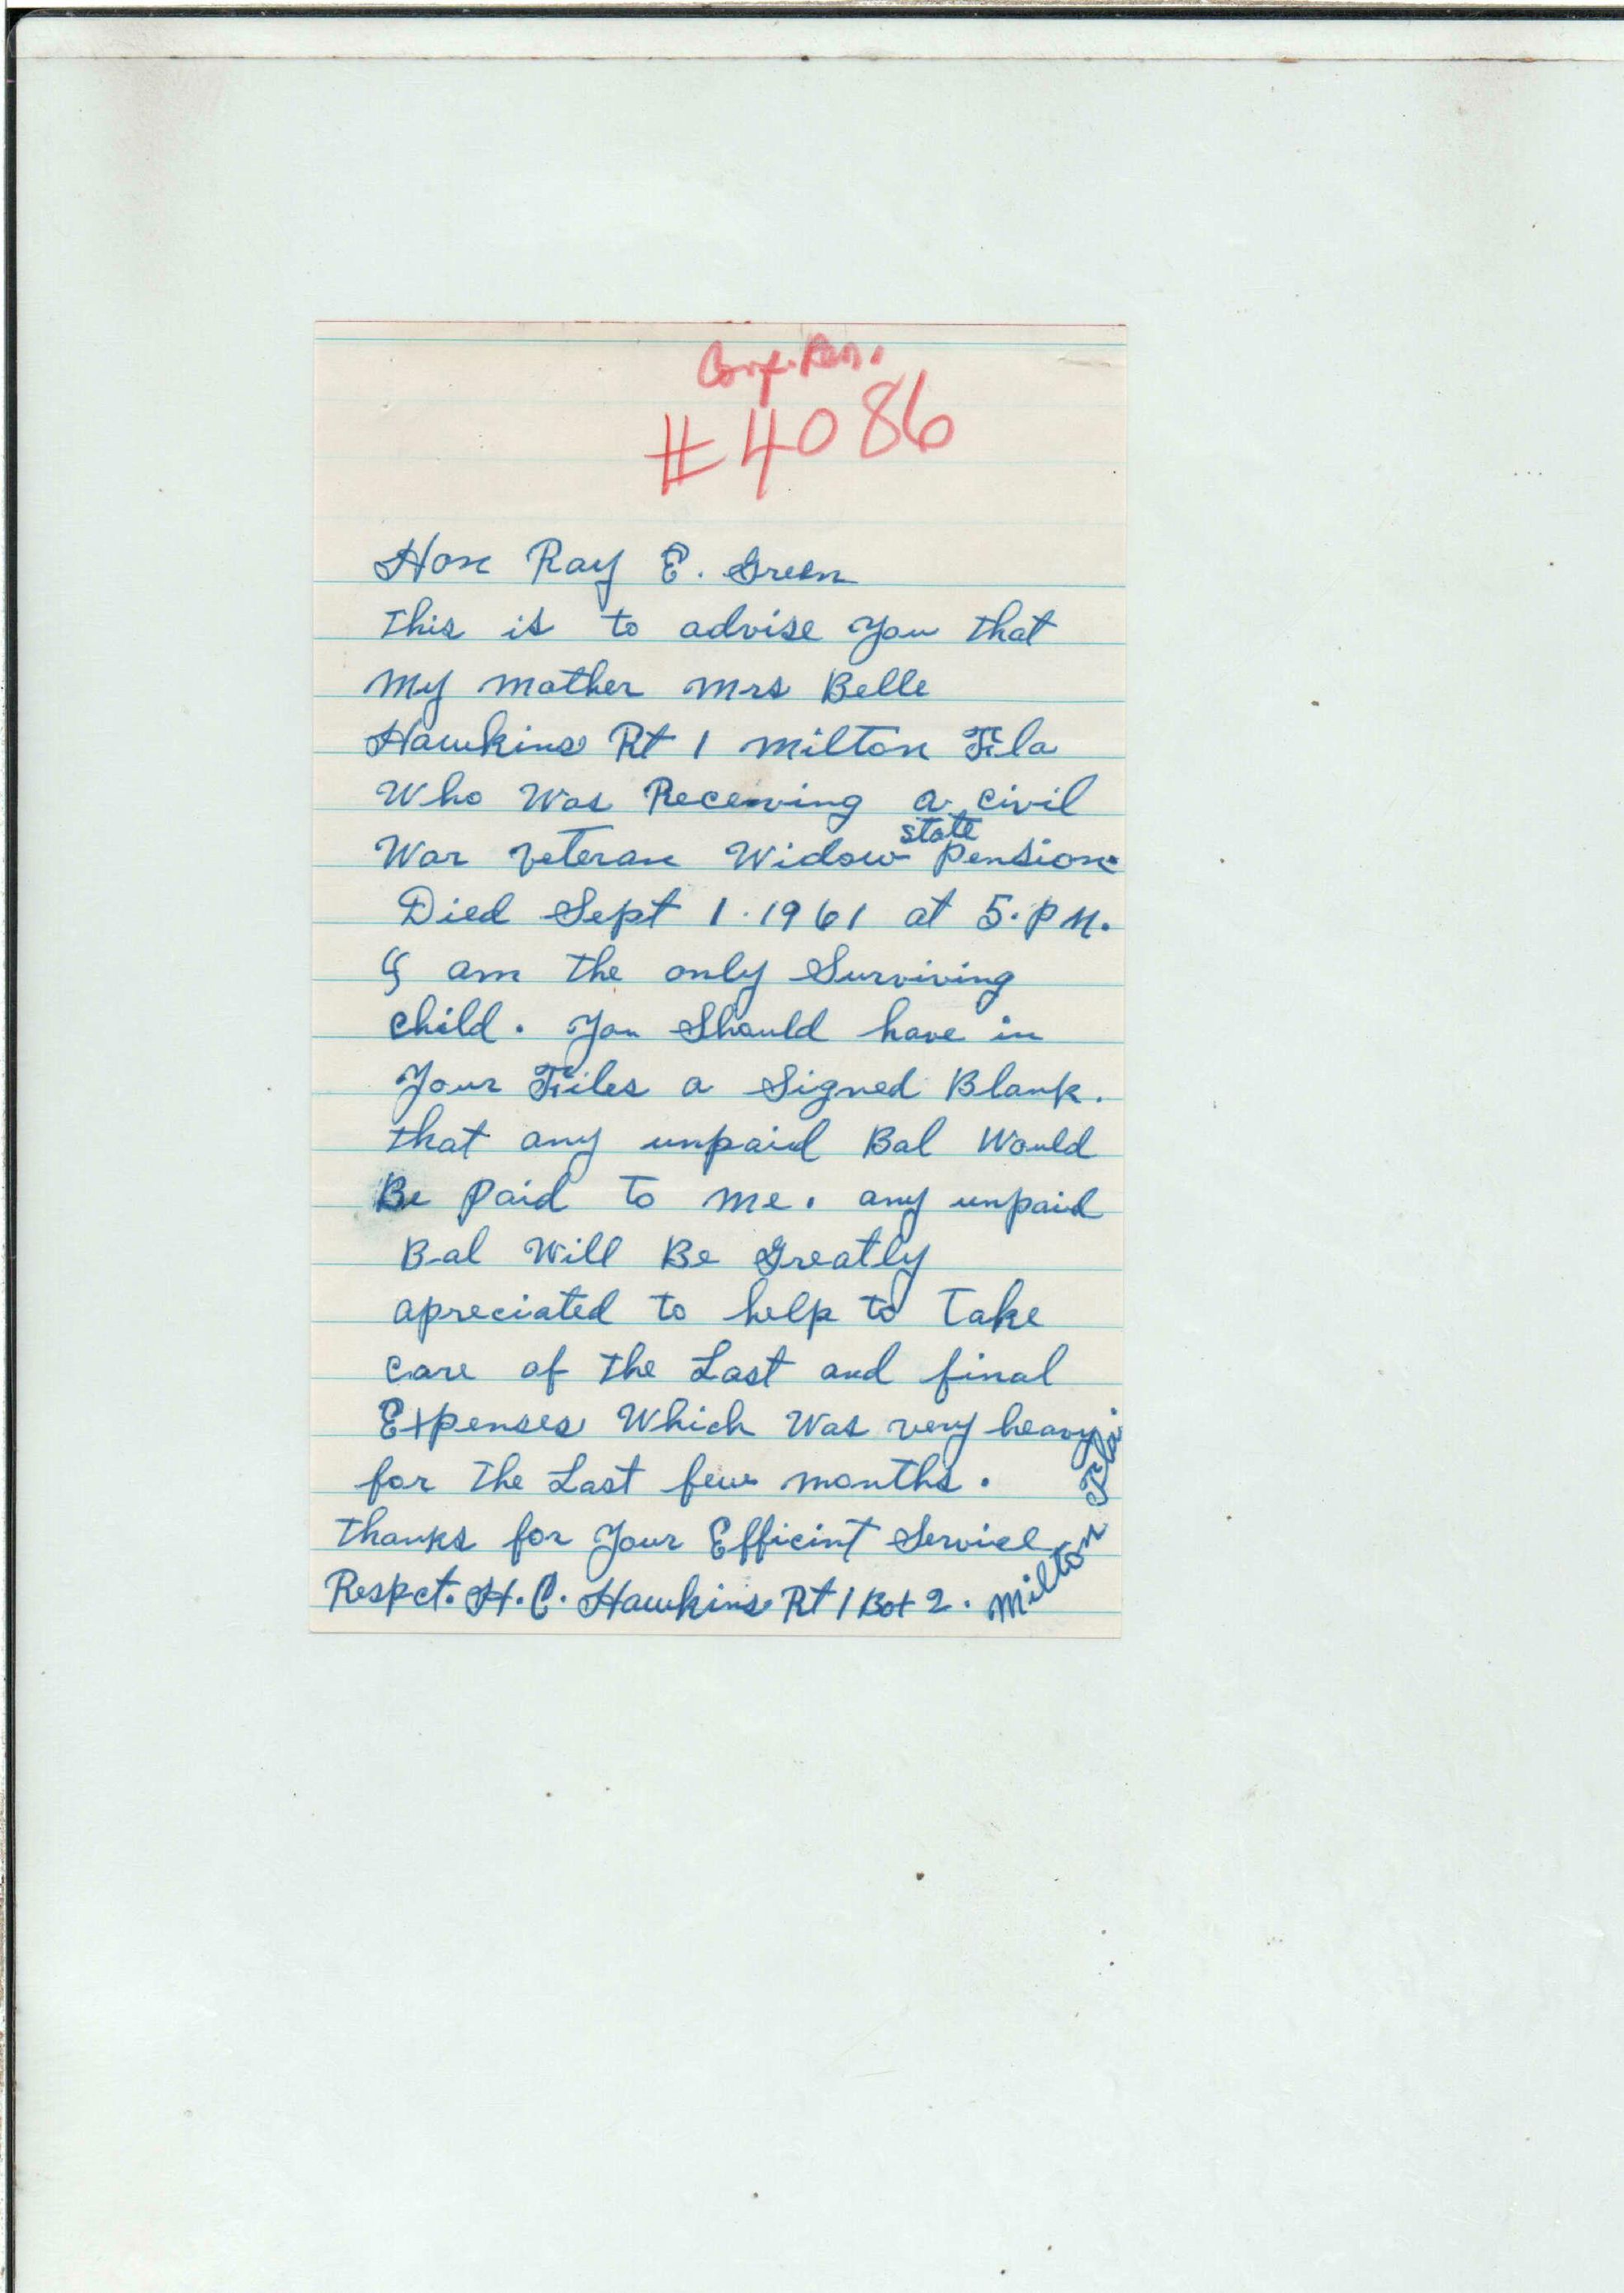 Conf. Pen.
#4086
Hon Ray E. Green
This is to advise you that
My mother Mrs Belle
Hawkins Rt 1 Milton Fla
Who Was Receiving a civil
War veteran Widow state pension
Died Sept 1. 1961 at 5. P M.
I am the only Surviving
child. You Should have in
Your Files a Signed Blank.
that any unpaid Bal Would
Be Paid to me. any unpaid
Bal Will Be Greatly
apreciated to help to Take
care of the Last and final
Expenses Which Was very heavy.
for the Last few months.
Thanks for Your Efficint Service
Respct. H. C. Hawkins Rt 1 Box 2. Milton Fla.